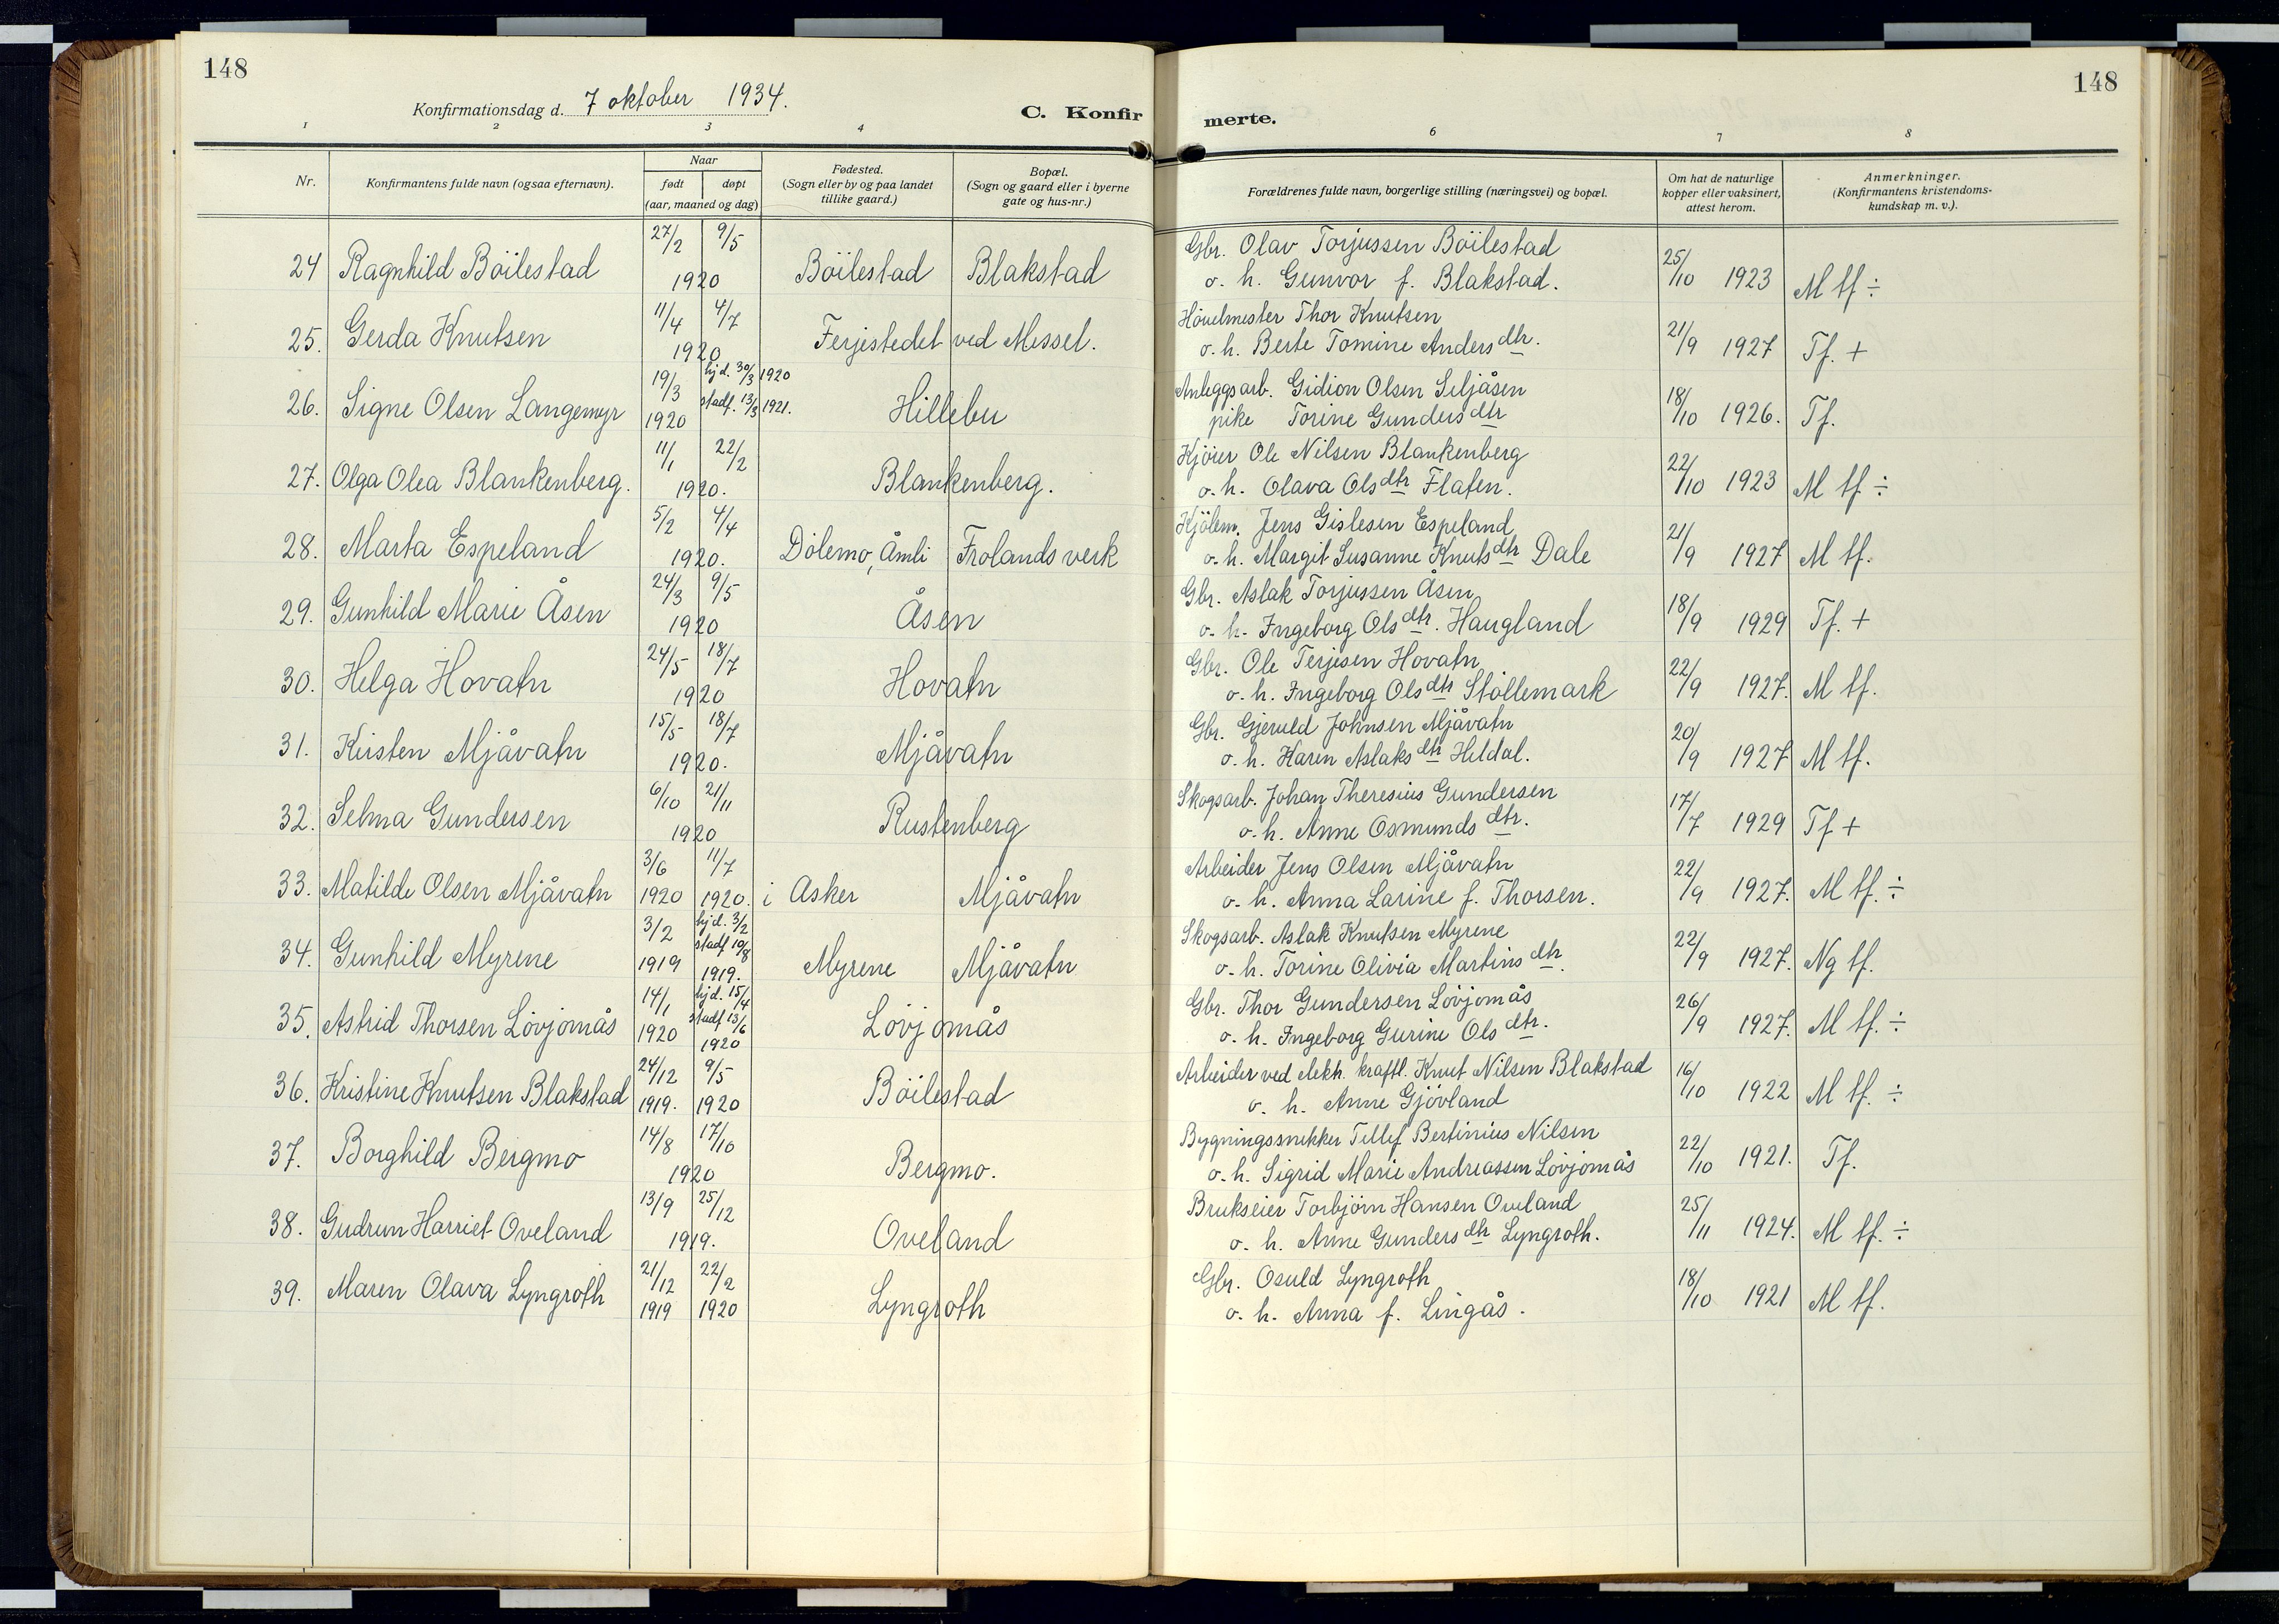 148
Konfirmationsdag d. 7 oktober 1934.
C. Konfirmerte.
148
1 2 3 4 6 7 8
Nr.
Konfirmantens fulde navn (ogsaa efternavn).
Naar
født
døpt
(aar, maaned og dag)
Fødested.
(Sogn eller by og paa landet
tillike gaard.)
Bopæl.
(Sogn og gaard eller i byerne
gate og hus-nr.)
Forældrenes fulde navn, borgerlige stilling (næringsvei) og bopæl.
Om hat de naturlige
kopper eller vaksinert,
attest herom.
Anmerkninger.
(Konfirmantens kristendoms-
kundskap m. v.).
27/2 9/5 Gbr. Olav Torjussen Böilestad
24 Ragnhild Böilestad 1920 Böilestad Blakstad o. h. Gunvor f. Blakstad. 25/10 1923 M tf ÷
11/4 4/7 Hövelmester Thor Knutsen
25. Gerda Knutsen 1920 Ferjestedet ved Messel. o. h. Berte Tomine Andersdtr. 21/9 1927 Tf. +
19/3 hjd. 30/3 1920 Anleggsarb. Gidion Olsen Seljåsen
26. Signe Olsen Langemyr 1920 stadf. 13/3 1921. Hillebu pike Torine Gundersdtr 18/10 1926. Tf.
11/1 22/2 Kjörer Ole Nilsen Blankenberg
27. Olga Olea Blankenberg. 1920. Blankenberg. o. h. Olava Olsdtr Flaten. 22/10 1923 M tf ÷
5/2 4/4 Kjölem. Jens Gislesen Espeland
28. Marta Espeland 1920. Dölemo, Åmli Frolands verk o. h. Margit Susanne Knutsdtr Dale 21/9 1927 M tf.
24/3 9/5 Gbr. Aslak Torjussen Åsen
29. Gunhild Marie Åsen 1920 Åsen o. h. Ingeborg Olsdtr. Haugland 18/9 1929 Tf. +
24/5 18/7 Gbr. Ole Terjesen Hovatn
30. Helga Hovatn 1920 Hovatn o. h. Ingeborg Olsdtr Stöllemark 22/9 1927. M tf.
15/5 18/7 Gbr. Gjeruld Johnsen Mjåvatn
31. Kirsten Mjåvatn 1920. Mjåvatn o. h. Karen Aslaksdtr Heldal. 20/9 1927 M tf.
6/10 21/11 Skogsarb. Johan Theresius Gundersen
32. Selma Gundersen 1920 Rustenberg o. h. Anne Osmundsdtr. 17/7 1929 Tf +
3/6 11/7 Arbeider Jens Olsen Mjåvatn
33. Matilde Olsen Mjåvatn 1920 1920. i Asker Mjåvatn o. h. Anna Larine f. Thorsen. 22/9 1927. M tf. ÷
3/2 hjd. 3/2 stadf 10/8 Skogsarb. Aslak Knutsen Myrene
34. Gunhild Myrene 1919 1919. Myrene Mjåvatn o. h. Torine Olivia Martinsdtr. 22/9 1927. Ng tf.
14/1 hjd. 15/4 stadf 13/6 Gbr. Thor Gundersen Lövjomås
35. Astrid Thorsen Lövjomås 1920 1920 Lövjomås o. h. Ingeborg Gurine Olsdtr. 26/9 1927. M tf. ÷
24/12 9/5 Arbeider ved elekh. kraftl. Knut Nilsen Blakstad
36. Kristine Knutsen Blakstad 1919. 1920 Böilestad o. h. Anne Gjövland 16/10 1922 M tf. ÷
14/8 17/10 Bygningssnekker Tellef Bertinius Nilsen
37. Borghild Bergmo 1920 Bergmo. o. h. Sigrid Marie Andreassen Lövjomås 22/10 1921. Tf.
13/9 25/12 Brukseier Torbjörn Hansen Oveland
38. Gudrun Harriet Oveland 1919. Oveland o. h. Anne Gundersdtr Lyngroth. 25/11 1924. M tf. ÷
21/12 22/2 Gbr. Osuld Lyngroth
39. Maren Olava Lyngroth 1919 1920 Lyngroth o. h. Anna f. Lingås. 18/10 1921 M tf.